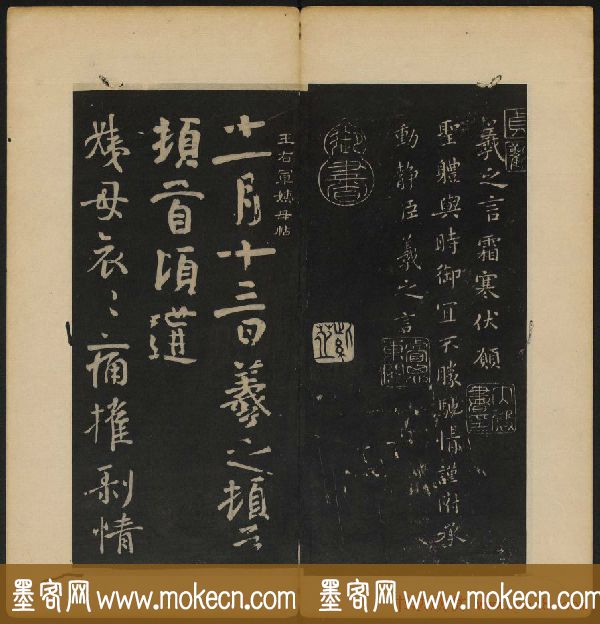 貞觀
羲之言霜寒伏願
聖體與時御宜不勝馳情謹附承
動靜臣羲之言
王右軍姨母帖
十一月十三日羲之頓首
頓首頃遘
姨母哀〻痛摧剝情
墨客网 www.mokecn.com 墨客网 www.mokecn.com